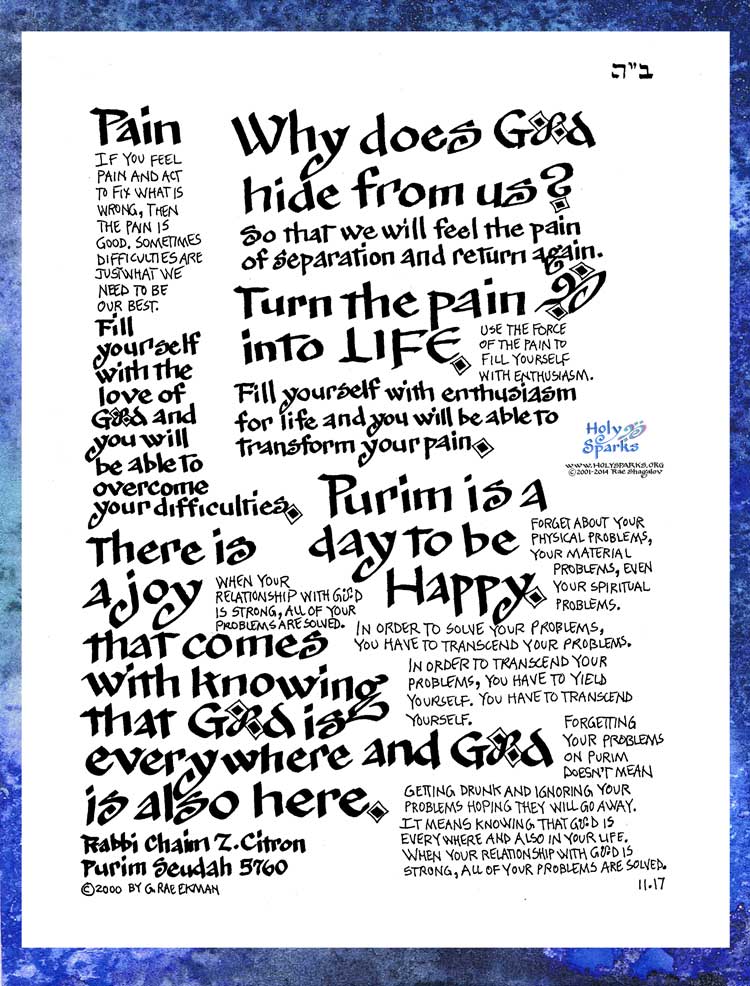 ב"ה
Pain
IF YOU FEEL
PAIN AND ACT
TO FIX WHAT IS
WRONG, THEN
THE PAIN IS
GOOD. SOMETIMES
DIFFICULTIES ARE
JUST WHAT WE
NEED TO BE
OUR BEST.
Fill
yourself
with the
love of
G‑d and
you will
be able to
overcome
your difficulties.
Why does G‑d
hide from us?
So that we will feel the pain
of separation and return again.
Turn the pain
into LIFE.
USE THE FORCE
OF THE PAIN TO
FILL YOURSELF
WITH ENTHUSIASM.
Fill yourself with enthusiasm
for life and you will be able to
transform your pain.
Holy
Sparks
WWW.HOLYSPARKS.ORG
©2001-2014 Rae Shagalov
Purim is a
day to be
Happy.
FORGET ABOUT YOUR
PHYSICAL PROBLEMS,
YOUR MATERIAL
PROBLEMS, EVEN
YOUR SPIRITUAL
PROBLEMS.
There is
a joy
WHEN YOUR
RELATIONSHIP WITH G‑D
IS STRONG, ALL OF YOUR
PROBLEMS ARE SOLVED.
that comes
with knowing
that G‑d is
everywhere and G‑d
is also here.
IN ORDER TO SOLVE YOUR PROBLEMS,
YOU HAVE TO TRANSCEND YOUR PROBLEMS.
IN ORDER TO TRANSCEND YOUR
PROBLEMS, YOU HAVE TO YIELD
YOURSELF. YOU HAVE TO TRANSCEND
YOURSELF.
FORGETTING
YOUR PROBLEMS
ON PURIM
DOESN'T MEAN
GETTING DRUNK AND IGNORING YOUR
PROBLEMS HOPING THEY WILL GO AWAY.
IT MEANS KNOWING THAT G‑D IS
EVERYWHERE AND ALSO IN YOUR LIFE.
WHEN YOUR RELATIONSHIP WITH G‑D IS
STRONG, ALL OF YOUR PROBLEMS ARE SOLVED.
Rabbi Chaim Z. Citron
Purim Seudah 5760
©2000 BY G. RAE EKMAN
11.17